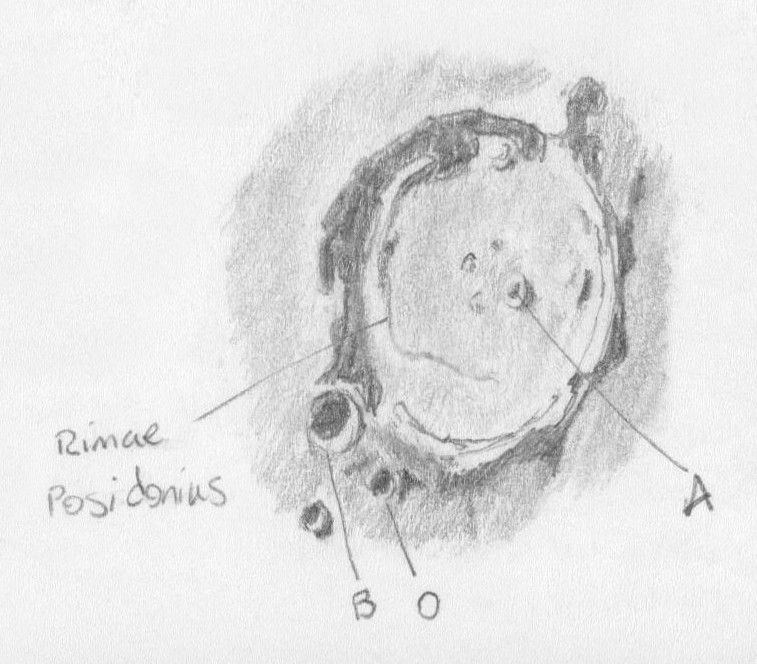 Rimae
Posidonius
A
B O